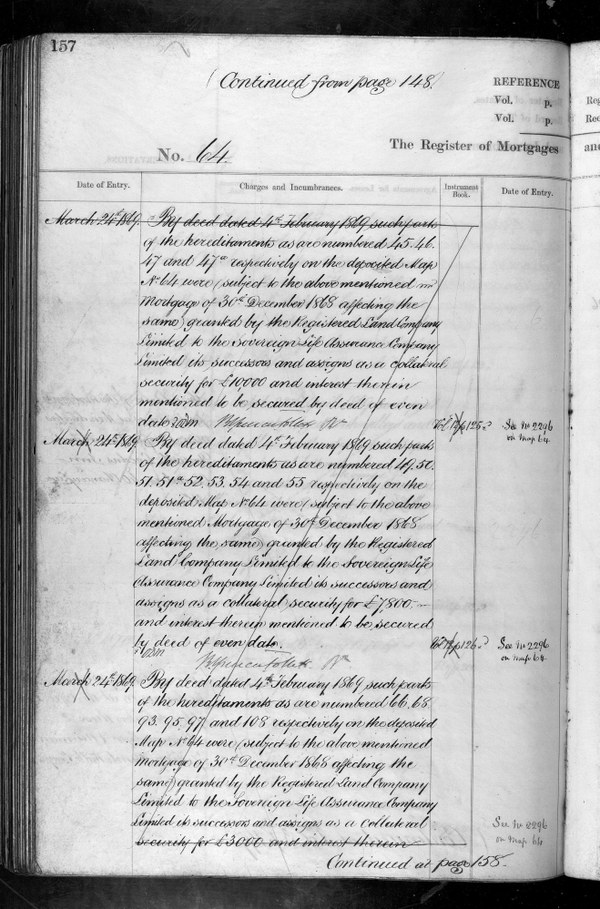 157
(Continued from page 148)
REFERENCE
Vol. p.
Vol. p.
No. 64.
The Register of Mortgages
Date of Entry.
Charges and Incumbrances.
Instrument Book.
Date of Entry.
March 24th 1869.
By deed dated 4th February 1869 such parts
of the hereditaments as are numbered 45. 46.
47 and 47a respectively on the deposited Map
No 64 were (subject to the above mentioned
Mortgage of 30th December 1868 affecting the
same) granted by the Registered Land Company
Limited to the Sovereign Life Assurance Company
Limited its successors and assigns as a collateral
security for £10000 and interest therein
mentioned to be secured by deed of even
date
Vol 12 p 125.
See No 2296
on Map 64.
March 24th 1869
By deed dated 4th February 1869 such parts
of the hereditaments as are numbered 49. 50.
51. 51a 52. 53. 54 and 55 respectively on the
deposited Map No 64 were (subject to the above
mentioned Mortgage of 30th December 1868
affecting the same) granted by the Registered
Land Company Limited to the Sovereign Life
Assurance Company Limited its successors and
assigns as a collateral security for £7,800.—
and interest therein mentioned to be secured
by deed of even date.
Vol 12 p 126.
See No 2296
on Map 64.
March 24th 1869
By deed dated 4th February 1869 such parts
of the hereditaments as are numbered 66. 68
93. 95. 97 and 108 respectively on the deposited
Map No 64 were (subject to the above mentioned
Mortgage of 30th December 1868 affecting the
same) granted by the Registered Land Company
Limited to the Sovereign Life Assurance Company
Limited its successors and assigns as a collateral
security for £3000 and interest therein
See No 2296
on Map 64
Continued at page 158.